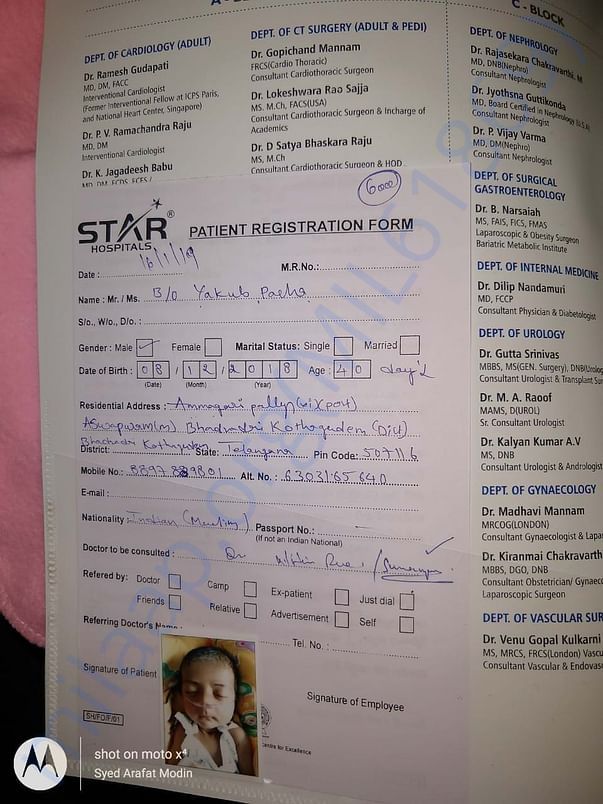 C - BLOCK
DEPT. OF CARDIOLOGY (ADULT)
Dr. Ramesh Gudapati
MD, DM, FACC
Interventional Cardiologist
(Former Interventional Fellow at ICPS Paris,
and National Heart Center, Singapore)
Dr. P. V. Ramachandra Raju
MD, DM
Interventional Cardiologist
Dr. K. Jagadeesh Babu
DEPT. OF CT SURGERY (ADULT & PEDI)
Dr. Gopichand Mannam
FRCS(Cardio Thoracic)
Consultant Cardiothoracic Surgeon
Dr. Lokeshwara Rao Sajja
MS. M.Ch, FACS(USA)
Consultant Cardiothoracic Surgeon & Incharge of
Academics
Dr. D Satya Bhaskara Raju
MS, M.Ch
Consultant Cardiothoracic Surgeon & HOD
DEPT. OF NEPHROLOGY
Dr. Rajasekara Chakravarthi. M
MD, DNB(Nephro)
Consultant Nephrologist
Dr. Jyothsna Guttikonda
MD, Board Certified in Nephrology (U.S.A)
Consultant Nephrologist
Dr. P. Vijay Varma
MD, DM(Nephro)
Consultant Nephrologist
DEPT. OF SURGICAL
GASTROENTEROLOGY
Dr. B. Narsaiah
MS, FAIS, FICS, FMAS
Laparoscopic & Obesity Surgeon
Bariatric Metabolic Institute
DEPT. OF INTERNAL MEDICINE
Dr. Dilip Nandamuri
MD, FCCP
Consultant Physician & Diabetologist
DEPT. OF UROLOGY
Dr. Gutta Srinivas
MBBS, MS(GEN. Surgery), DNB(Urolo
Consultant Urologist & Transplant Su
Dr. M. A. Raoof
MAMS, D(UROL)
Sr. Consultant Urologist
Dr. Kalyan Kumar A.V
MS, DNB
Consultant Urologist & Andrologist
DEPT. OF GYNAECOLOGY
Dr. Madhavi Mannam
MRCOG(LONDON)
Consultant Gynaecologist & Lapa
Dr. Kiranmai Chakravarth
MBBS, DGO, DNB
Consultant Obstetrician/ Gynaeco
Laparoscopic Surgeon
DEPT. OF VASCULAR SUR
Dr. Venu Gopal Kulkarni
MS, MRCS, FRCS(London) Vascu
Consultant Vascular & Endovas
6000
STAR®
HOSPITALS
PATIENT REGISTRATION FORM
Date : 16/1/19 M.R.No.:
Name : Mr. / Ms. B/o Yakub Pasha
S/o., W/o., D/o. :
Gender : Male Female Marital Status: Single Married
Date of Birth : 08 / 12 / 2018 Age : 40 day's
(Date) (Month) (Year)
Residential Address : Ammagari pally
Aswapuram(m) Bhadradri Kothagudem (Dist)
District: Bhadradri Kothagudem State: Telangana Pin Code: 507116
Mobile No.: 8897889801 Alt. No. : 6303165640
E-mail :
Nationality : Indian (Muslim) Passport No.:
(If not an Indian National)
Doctor to be consulted : Dr Nitin Rao /
Refered by: Doctor Camp Ex-patient Just dial
Friends Relative Advertisement Self
Referring Doctor's Name
Tel. No. :
Signature of Patient
Signature of Employee
SH/FO/F/01
Centre for Excellence
shot on moto x⁴
Syed Arafat Modin